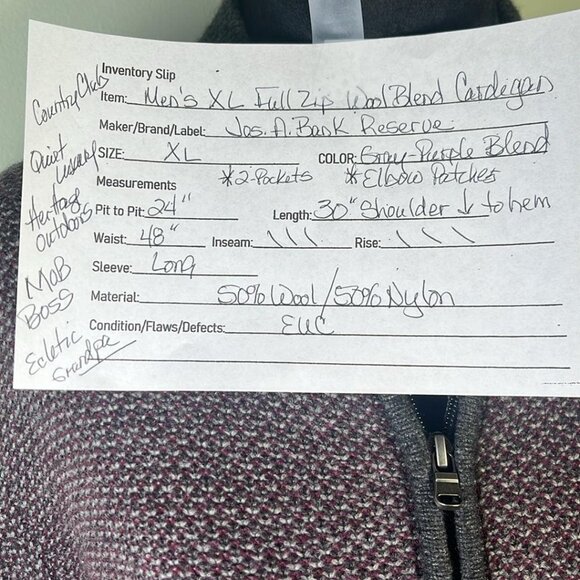 Inventory Slip
Item: Men's XL Full Zip Wool Blend Cardigan
Maker/Brand/Label: Jos. A. Bank Reserve
SIZE: XL COLOR: Gray-Purple Blend
Measurements *2-Pockets *Elbow Patches
Pit to Pit: 24" Length: 30" Shoulder ↓ to hem
Waist: 48" Inseam: \ \ \ Rise: \ \ \
Sleeve: Long
Material: 50% Wool/50% Nylon
Condition/Flaws/Defects: EUC
Country Club
Quiet
Luxury
Heritage
Outdoors
MOB
BOSS
Ecletic
Grandpa